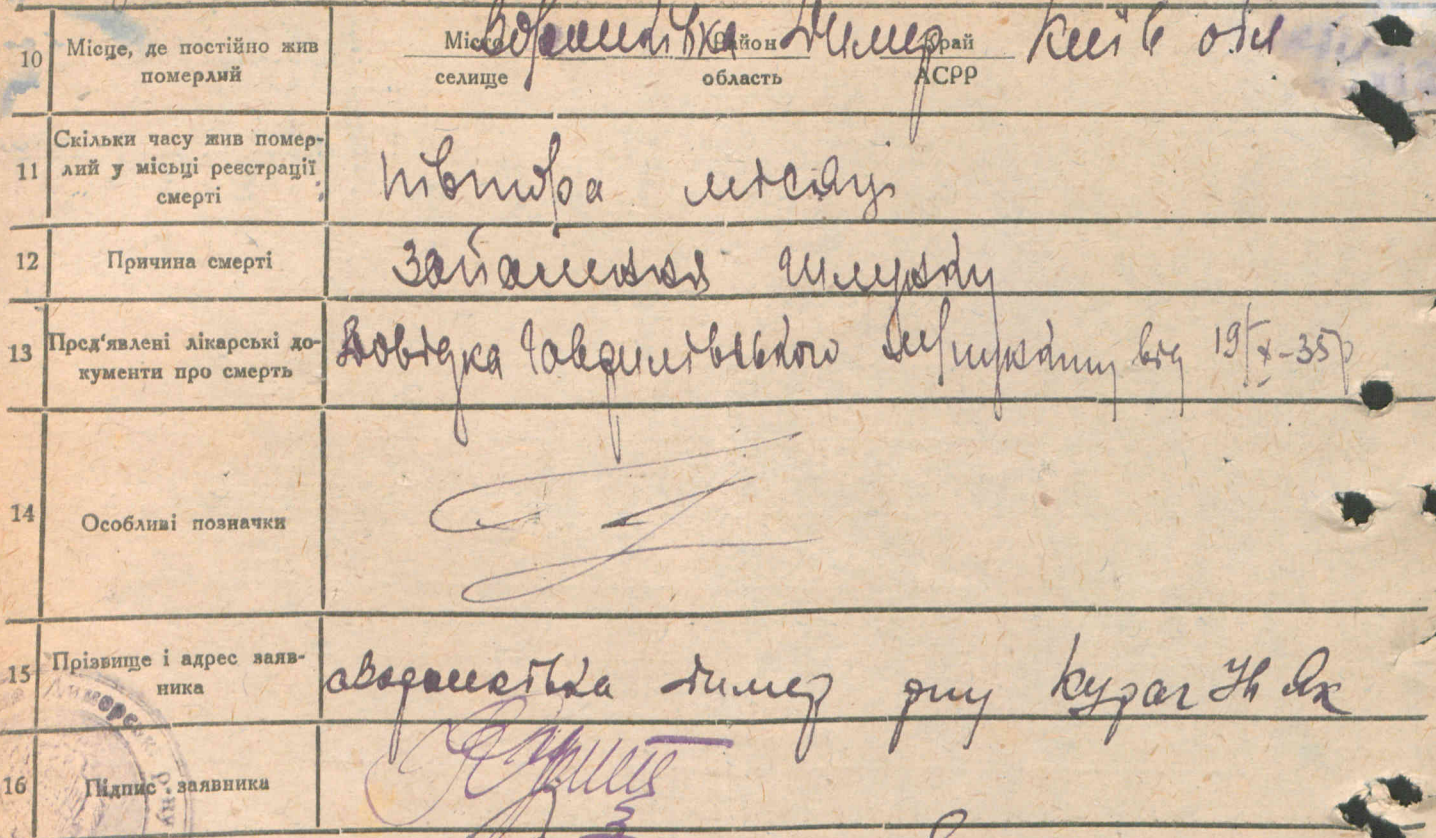 10 Місце, де постійно жив померлий Місто селище Район область Край АСРР Димер Київ обл
11 Скільки часу жив померлий у місці реєстрації смерті півтора місяці
12 Причина смерті Запалення шлунку
13 Пред'явлені лікарські документи про смерть Довідка Гаврилівського від 19/X-35р
14 Особливі позначки
15 Прізвище і адрес заявника Димер рну
16 Підпис заявника